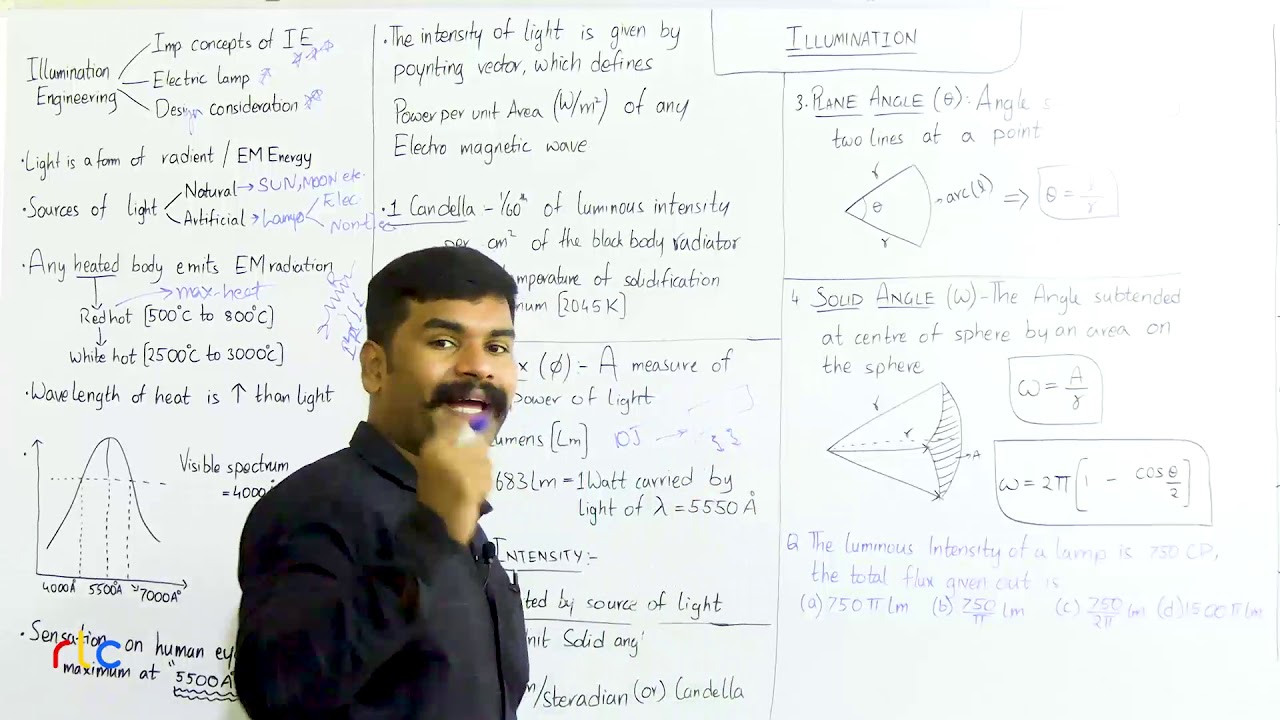 Illumination Engineering
Imp concepts of IE
Electric lamp
Design consideration
·Light is a form of radient / EM Energy
·Sources of light
Natural → SUN, MOON etc.
Artificial → Lamp
Elec.
Non-Elec
·Any heated body emits EM radiation
→ max-heat
Redhot [500°C to 800°C]
White hot [2500°C to 3000°C]
·Wavelength of heat is ↑ than light
Visible spectrum
=4000
4000Å 5500Å 7000Å
·Sensation on human
maximum at "5500Å
rlc
·The intensity of light is given by
poynting vector, which defines
Power per unit Area (W/m²) of any
Electro magnetic wave
·1 Candella - 1/60th of luminous intensity
per cm² of the black body radiator
temperature of solidification
[2045K]
(φ):- A measure of
Power of light
Lumens [Lm] 10J →
683Lm = 1Watt carried by
light of λ = 5550Å
INTENSITY:-
by source of light
Solid
/steradian (or) Candella
ILLUMINATION
3. PLANE ANGLE (θ): Angle
two lines at a point
r
θ
r
arc(l) ⇒ θ = l/r
4 SOLID ANGLE (ω) - The Angle subtended
at centre of sphere by an area on
the sphere
ω = A/r
r
r
A
ω = 2π[1 - cosθ/2]
Q The luminous Intensity of a lamp is 750 CP,
the total flux given out is
(a) 750π lm (b) 750/π lm (c) 750/2π lm (d) 1500π lm